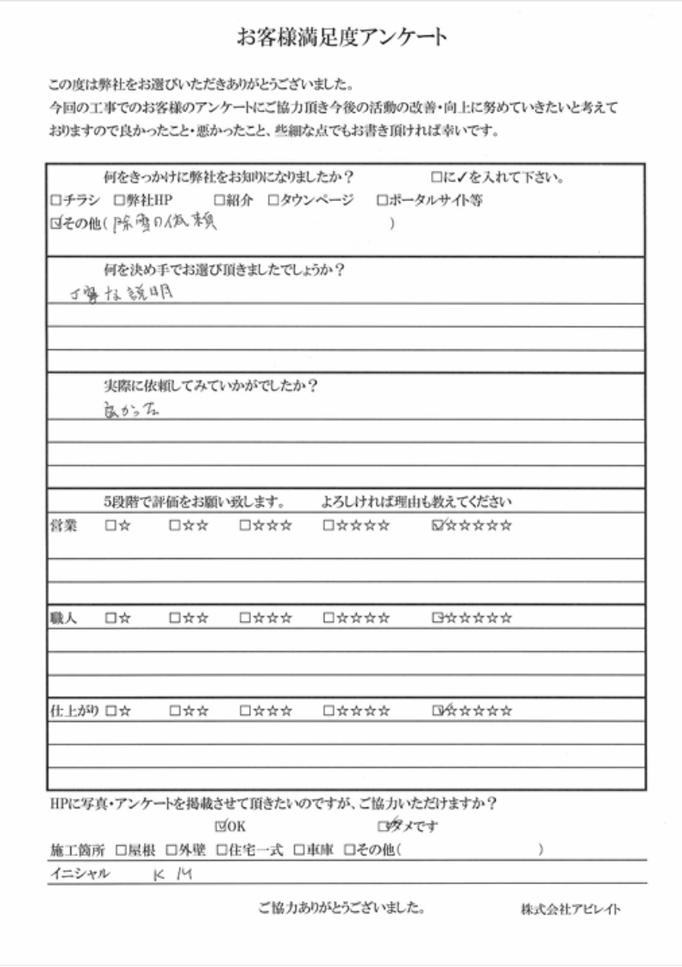 お客様満足度アンケート
この度は弊社をお選びいただきありがとうございました。
今回の工事でのお客様のアンケートにご協力頂き今後の活動の改善・向上に努めていきたいと考えて
おりますので良かったこと・悪かったこと、些細な点でもお書き頂ければ幸いです。
何をきっかけに弊社をお知りになりましたか? □に✓を入れて下さい。
□チラシ □弊社HP □紹介 □タウンページ □ポータルサイト等
☑その他( 除雪の依頼 )
何を決め手でお選び頂きましたでしょうか?
丁寧な説明
実際に依頼してみていかがでしたか?
良かった
5段階で評価をお願い致します。 よろしければ理由も教えてください
営業 □☆ □☆☆ □☆☆☆ □☆☆☆☆ ☑☆☆☆☆☆
職人 □☆ □☆☆ □☆☆☆ □☆☆☆☆ ☑☆☆☆☆☆
仕上がり □☆ □☆☆ □☆☆☆ □☆☆☆☆ ☑☆☆☆☆☆
HPに写真・アンケートを掲載させて頂きたいのですが、ご協力いただけますか?
☑OK ☑ダメです
施工箇所 □屋根 □外壁 □住宅一式 □車庫 □その他( )
イニシャル K M
ご協力ありがとうございました。 株式会社アビレイト